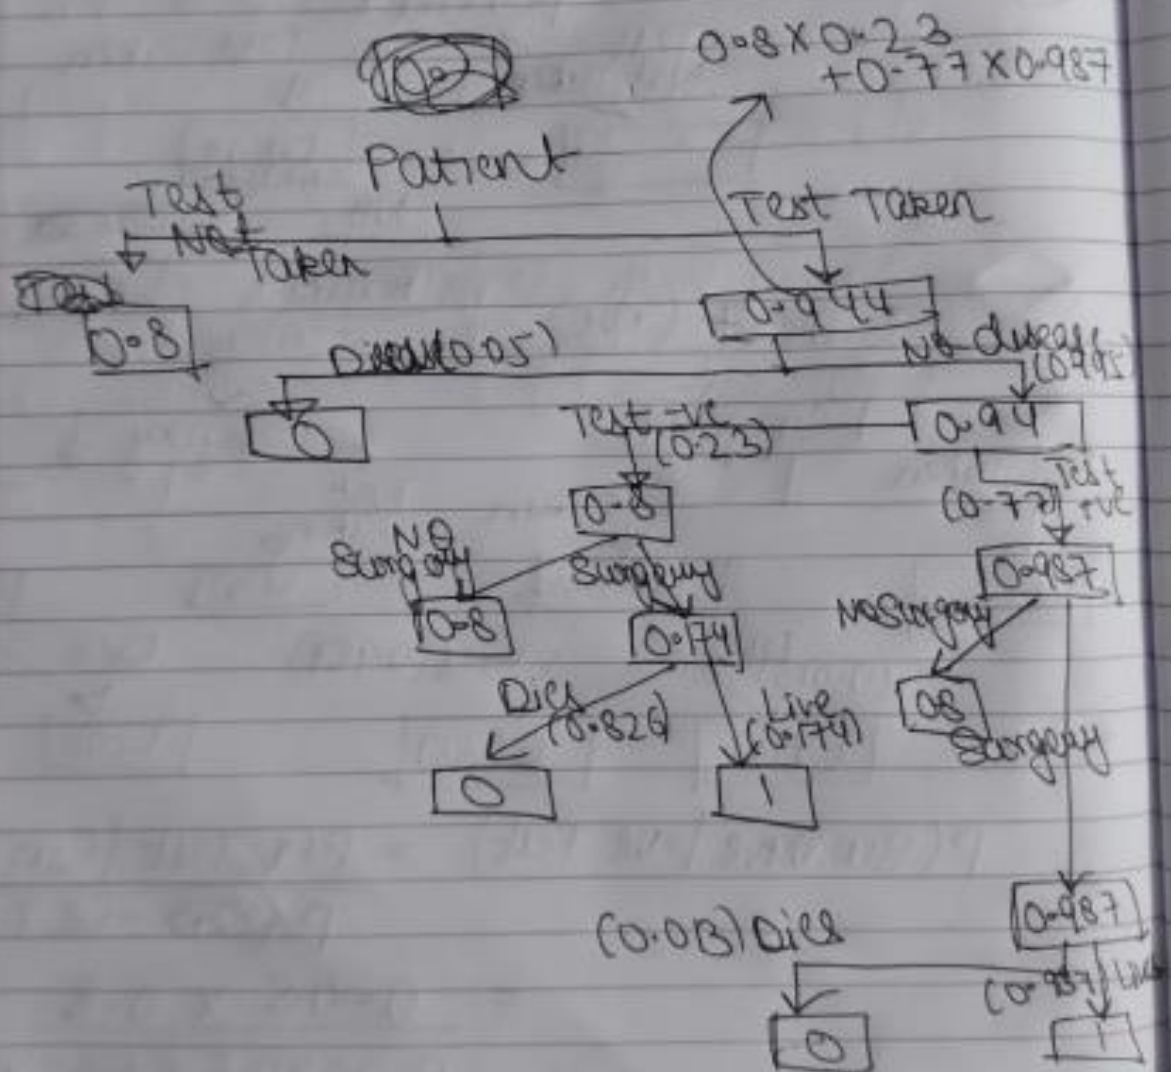 0.8 X 0.23
+0.77 X 0.987
Patient
Test
Not
Taken
Test Taken
0.8
0.944
(0.05)
No disease
0
Test -ve
(0.23)
0.94
Test
+ve
(0.77)
0.8
0.987
No
Surgery
Surgery
No Surgery
0.8
0.174
0.8
Surgery
Dies
(0.826)
Live
(0.174)
0
1
0.987
(0.013) Dies
(0.987)
0
1